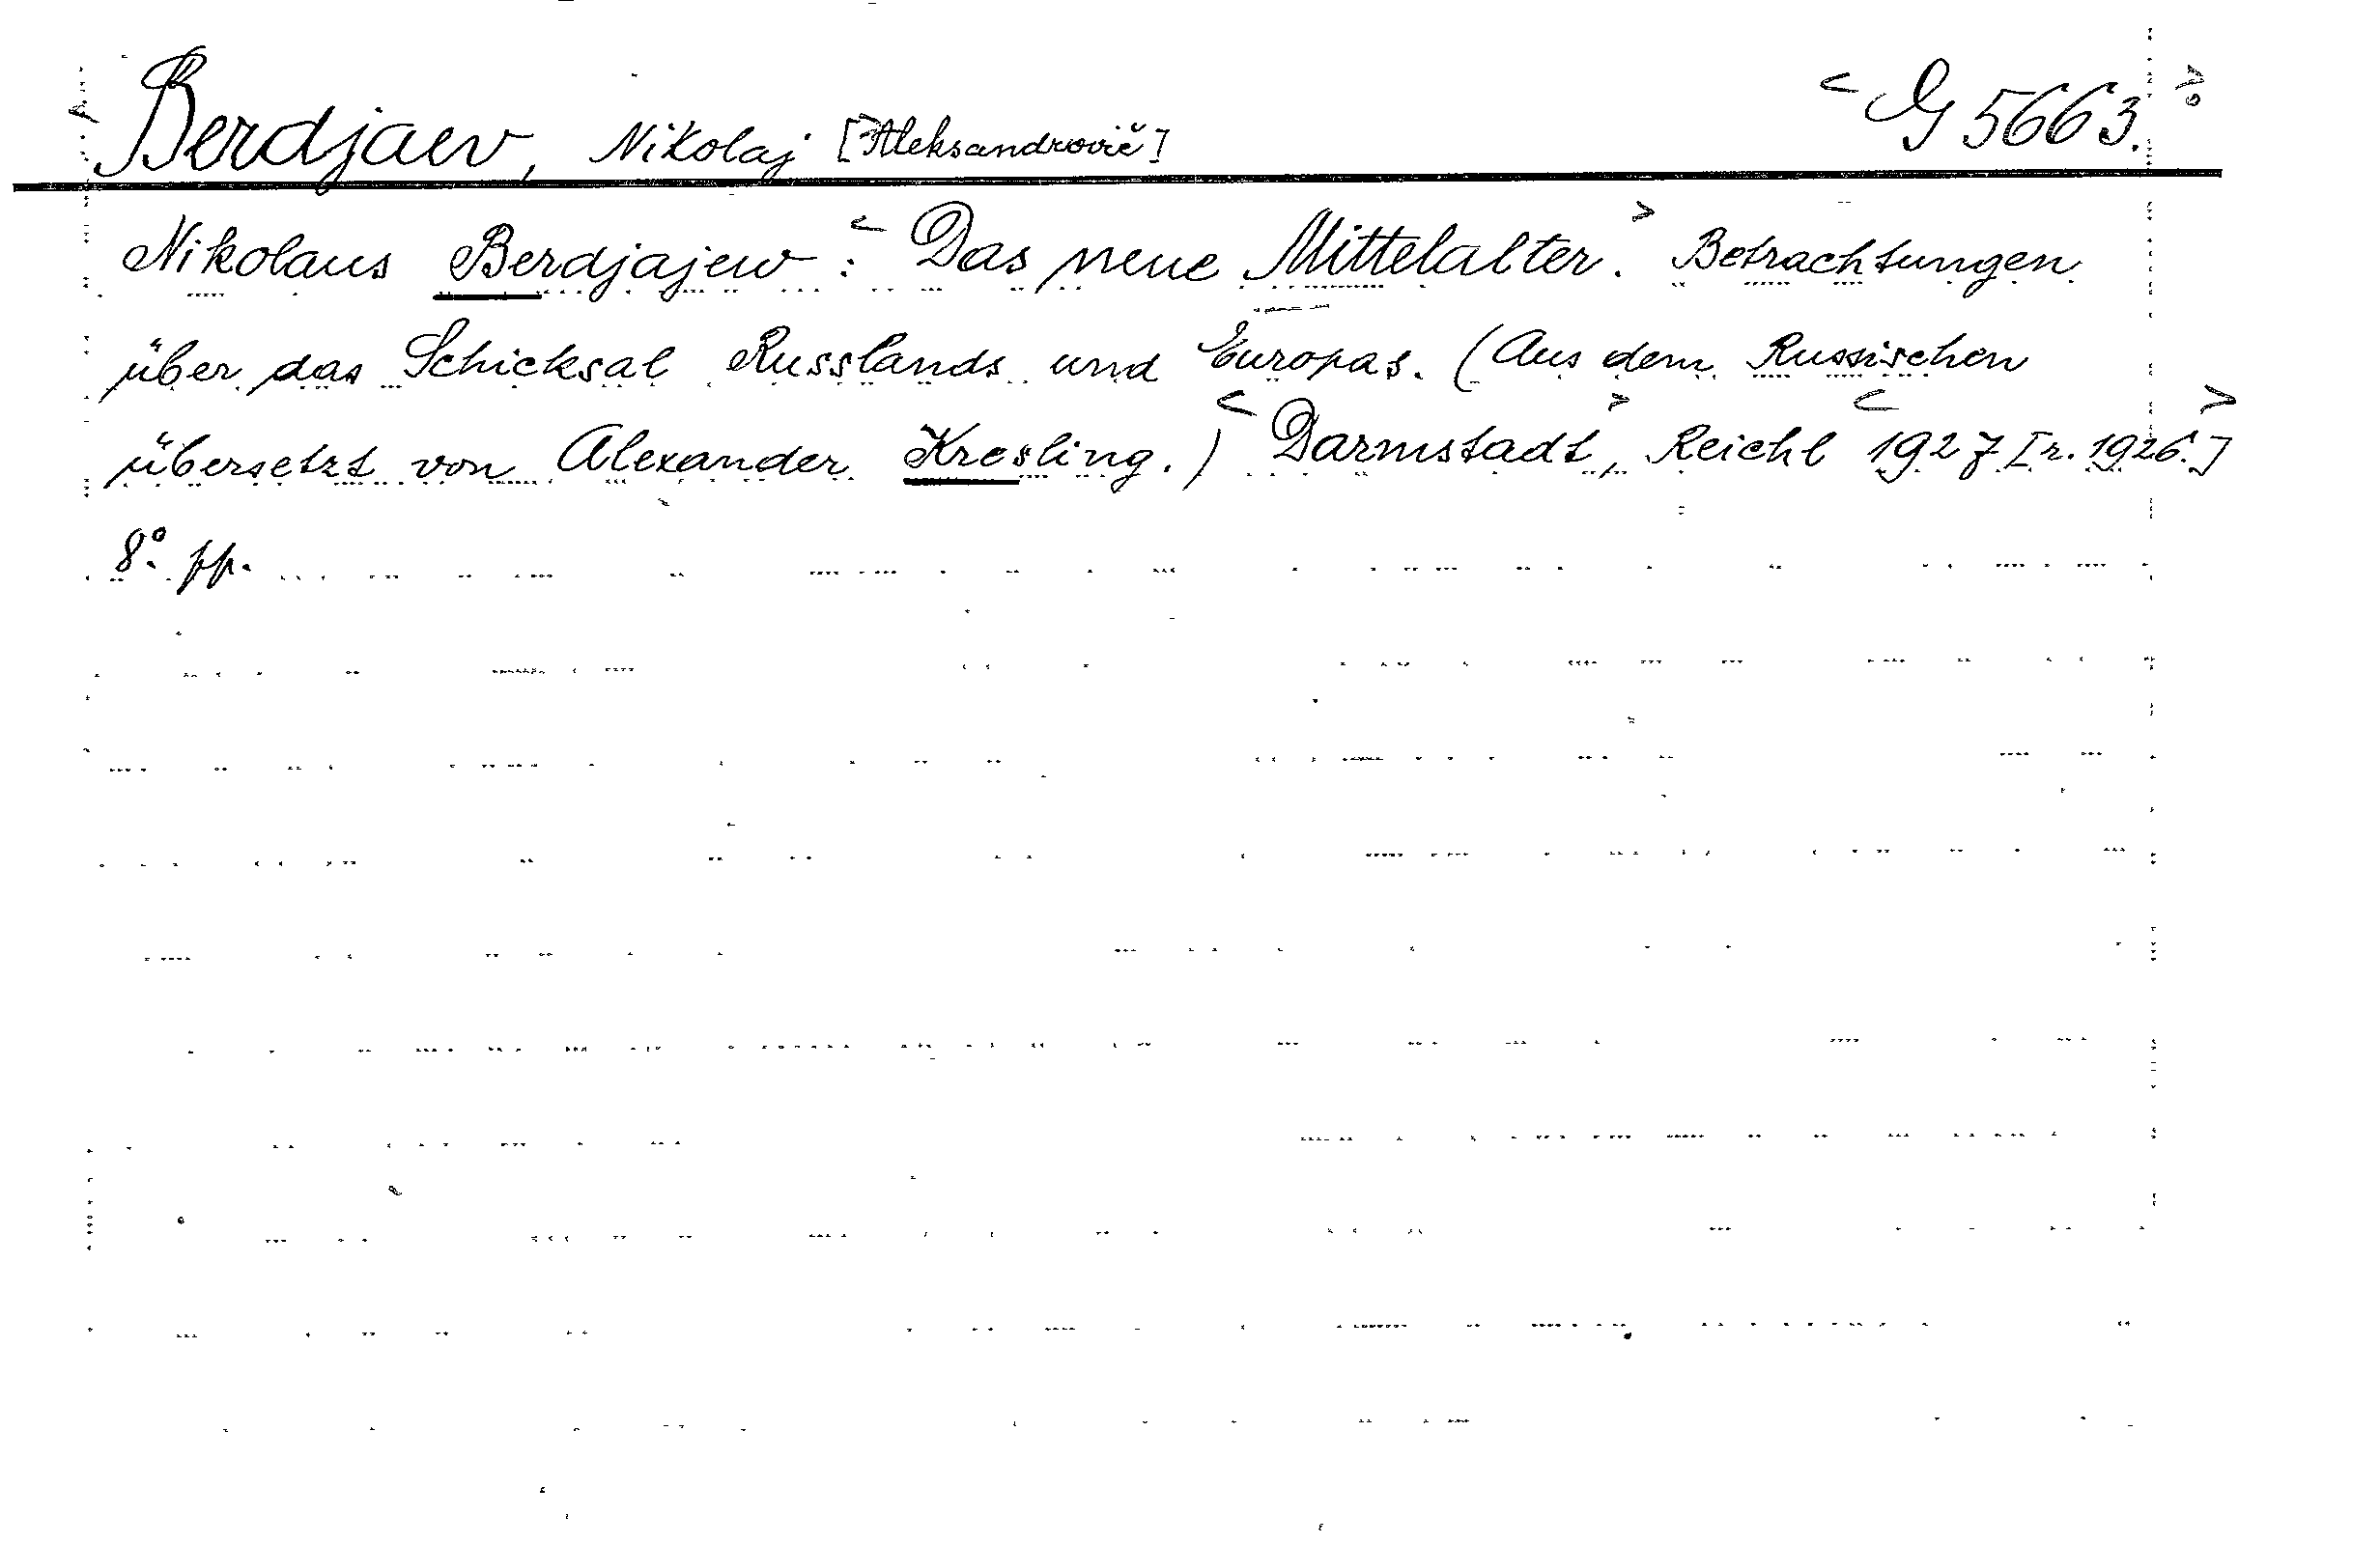 Berdjaev, Nikolaj [Aleksandrovič] <G 5663.>
Nikolaus Berdjajew: <Das neue Mittelalter.> Betrachtungen
über das Schicksal Russlands und Europas. (Aus dem Russischen
übersetzt von Alexander Kresling.) <Darmstadt>, Reichl <1927 [r. 1926.]>
8°. pp.